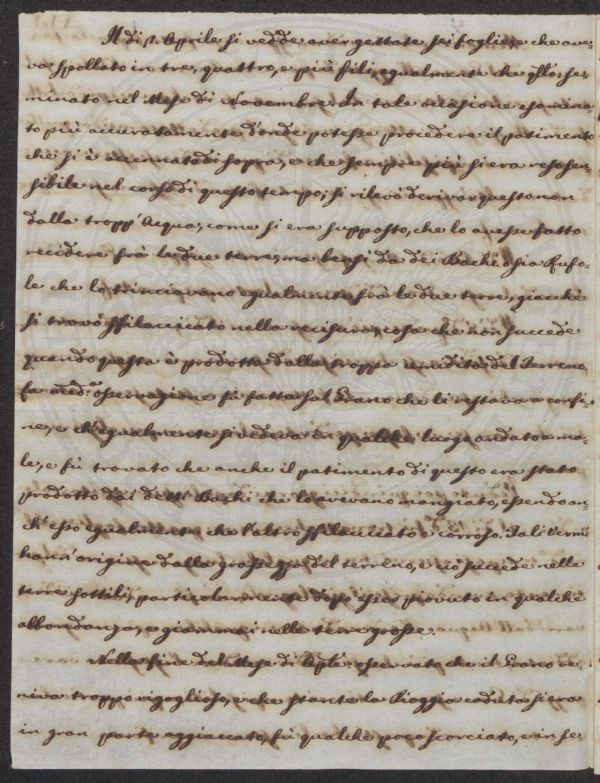 Il dì 1. Aprile si vedde aver gettate sei foglie, e che ave-
va spollato in tre, quattro, e più fili, egualmente che qllo se-
minato nel Mese di Novembre. In tale occasione esamina-
to più accuratamente d'onde potesse procedere il patimento
che si è accennato di sopra, e che sempre più si era reso sen-
sibile nel corso di questo tempo, si rilevò derivar questo non
dalla tropp'Acqua, come si era supposto, che lo avesse fatto
recidere frà le due terre, ma bensì da dei Bachi o sia Rufo-
le che lo trinciavano egualmente frà le due terre, giacchè
si trovò sfilaccicato nella recisura, cosa che non succede
quando questa è prodotta dalla troppa umidità del Terreno.
La med.a osservazione fù fatta sul Grano che li restava a confi-
ne, e ch'egualmente si vedeva in qualche luogo andato a ma-
le, e fù trovato che anche il patimento di questo era stato
prodotto dai detti Bachi che lo avevano mangiato, essendo an-
ch'esso egualmente che l'altro sfilaccicato e corroso. Tali Vermi
hann'origine dalla grossezza del terreno, e ciò succede nelle
terre sottili, particolarmente dopo esser piovuto in qualche
abbondanza, e giammai nelle terre grosse.
Nella fine del Mese di Aple osservato che il Grano ve-
niva troppo rigoglioso, e che stante la Pioggia caduta si era
in gran parte aggiaccato, fù qualche poco scorciato, e in se-